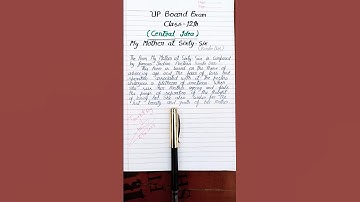 UP Board Exam
Class-12th
(Central Idea)
My Mother at Sixty-Six
(Kamala Das)
The Poem My Mother at Sixty-Six is composed
by famous Indian Poetess Kamla Das.
This Poem is based on the theme of
advancing age and the fears of loss and
separation associated with it. The poetess
undergoes a plethora of emotions when
she sees her Mother ageing and feels
the pangs of separation at the thought
of losing her. She also
lost beauty and youth of her Mother